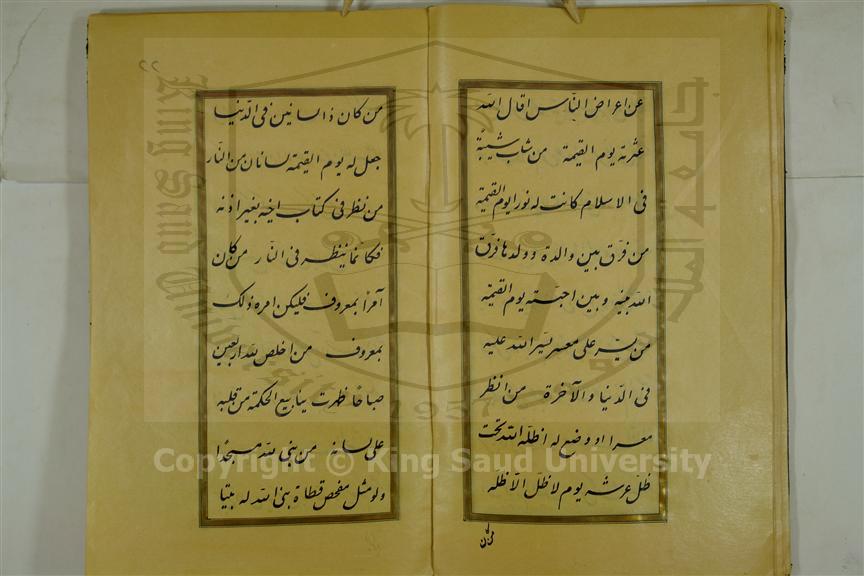 عن اعراض الناس اقال الله
عثرته يوم القيمة من شاب شيبة
فى الاسلام كانت له نورا يوم القيمة
من فرّق بين والدة وولدها فرّق
الله بينه وبين احبّته يوم القيمة
من يسّر على معسر يسّر الله عليه
فى الدّنيا والآخرة من انظر
معسرا او وضع له اظلّه الله تحت
ظلّ عرشه يوم لا ظلّ الّا ظلّه
من كان
٢٢
من كان ذا لسانين فى الدّنيا
جعل له يوم القيمة لسانان من النّار
من نظر فى كتاب اخيه بغير اذنه
فكانّما ينظر فى النّار من كان
آمرا بمعروف فليكن امره ذلك
بمعروف من اخلص لله اربعين
صباحًا ظهرت ينابيع الحكمة من قلبه
على لسانه من بنى لله مسجدًا
ولو مثل مفحص قطاة بنى الله له بيتا
جامعة الملك
King Saud University
1957
Copyright © King Saud University